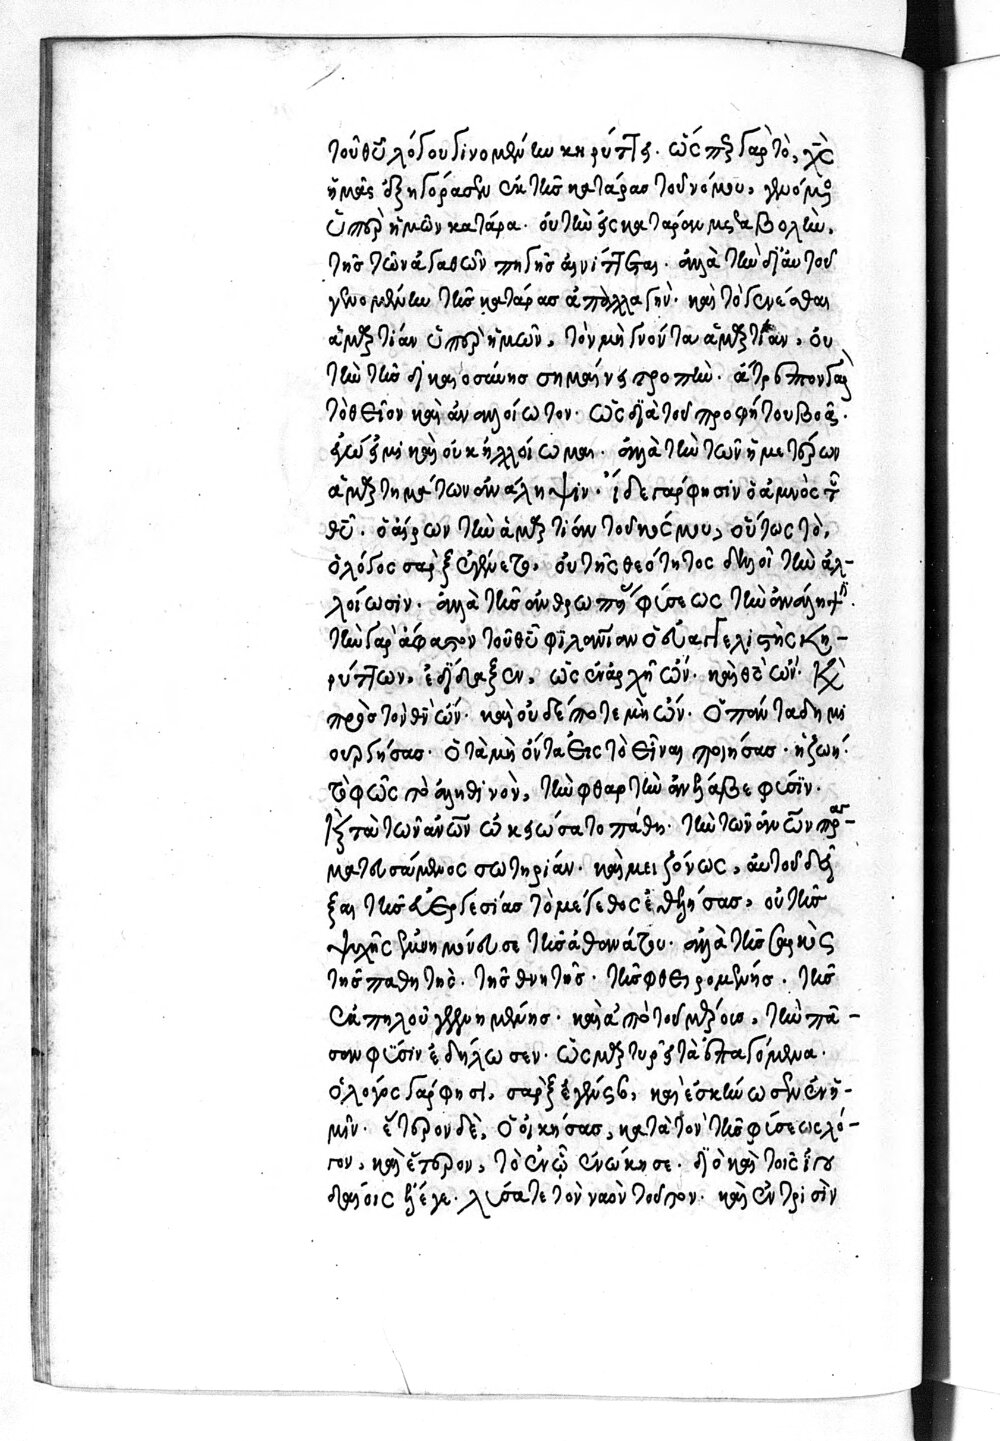 τοῦ θῦ λόγου γινομένην κηρύττει. ὥσπερ γὰρ τὸ, χς
ἡμᾶς ἐξηγόρασεν ἐκ τῆς κατάρας τοῦ νόμου, γενόμενος
ὑπὲρ ἡμῶν κατάρα. οὐ τὴν εἰς κατάραν μεταβολὴν,
τῆς τῶν ἀγαθῶν πηγῆς αἰνίττεται. ἀλλὰ τὴν δι' αὐτοῦ
γενομένην τῆς κατάρας ἀπαλλαγήν. καὶ τὸ γενέσθαι
ἁμαρτίαν ὑπὲρ ἡμῶν, τὸν μὴ γνόντα ἁμαρτίαν, οὐ
τὴν τῆς δικαιοσύνης σημαίνει τροπὴν. ἄτρεπτον γὰρ
τὸ θεῖον καὶ ἀναλλοίωτον. ὡς διὰ τοῦ προφήτου βοᾶ.
ἐγώ εἰμι καὶ οὐκ ἠλλοίωμαι. ἀλλὰ τὴν τῶν ἡμετέρων
ἁμαρτημάτων ἀνάληψιν. ἴδε γάρ φησιν ὁ ἀμνὸς τοῦ
θῦ. ὁ αἴρων τὴν ἁμαρτίαν τοῦ κόσμου, οὕτως τὸ,
ὁ λόγος σαρξ ἐγένετο, οὐ τῆς θεότητος δηλοῖ τὴν ἀλ-
λοίωσιν. ἀλλὰ τῆς ἀνθρωπίνης φύσεως τὴν ἀνάληψιν.
τὴν γὰρ ἄφατον τοῦ θῦ φιλανίαν ὁ εὐαγγελιστὴς κη-
ρύττων, ἐδίδαξεν, ὡς ἐν ἀρχῆ ὤν. καὶ θς ὤν. καὶ
πρὸς τὸν θν ὤν. καὶ οὐδέποτε μὴ ὤν. ὁ πάντα δημι
ουργήσας. ὁ τὰ μὴ ὄντα εἰς τὸ εἶναι ποιήσας. ἡ ζωή.
τὸ φῶς τὸ ἀληθινὸν, τὴν φθαρτὴν ἀνέλαβε φύσιν.
καὶ τὰ τῶν ἀνων ὠκειώσατο πάθη. τὴν τῶν ἀνων πραγ-
ματευσάμενος σωτηρίαν. καὶ μειζόνως, αὐτοῦ δεῖ
ξαι τῆς εὐεργεσίας τὸ μέγεθος ἐθελήσας, οὐ τῆς
ψυχῆς ἐμνημόνευσε τῆς ἀθανάτου. ἀλλὰ τῆς σαρκὸς
τῆς παθητῆς. τῆς θνητῆς. τῆς φθειρομένης. τῆς
ἐκ πηλοῦ γεγενημένης. καὶ ἀπὸ τοῦ μέρους, τὴν πᾶ-
σαν φύσιν ἐδήλωσεν. ὡς μαρτυρεῖ τὰ ἐπαγόμενα.
ὁ λόγος γάρ φησι, σαρξ ἐγένετο, καὶ ἐσκήνωσεν ἐν ἡ-
μῖν. ἕτερον δὲ, ὁ οἰκήσας, κατὰ τὸν τῆς φύσεως λό-
γον, καὶ ἕτερον, τὸ ἐν ῶ ἐνώκησε. διὸ καὶ τοῖς ἰου
δαίοις ἔλεγε. λύσατε τὸν ναὸν τοῦτον. καὶ ἐν τρισὶν